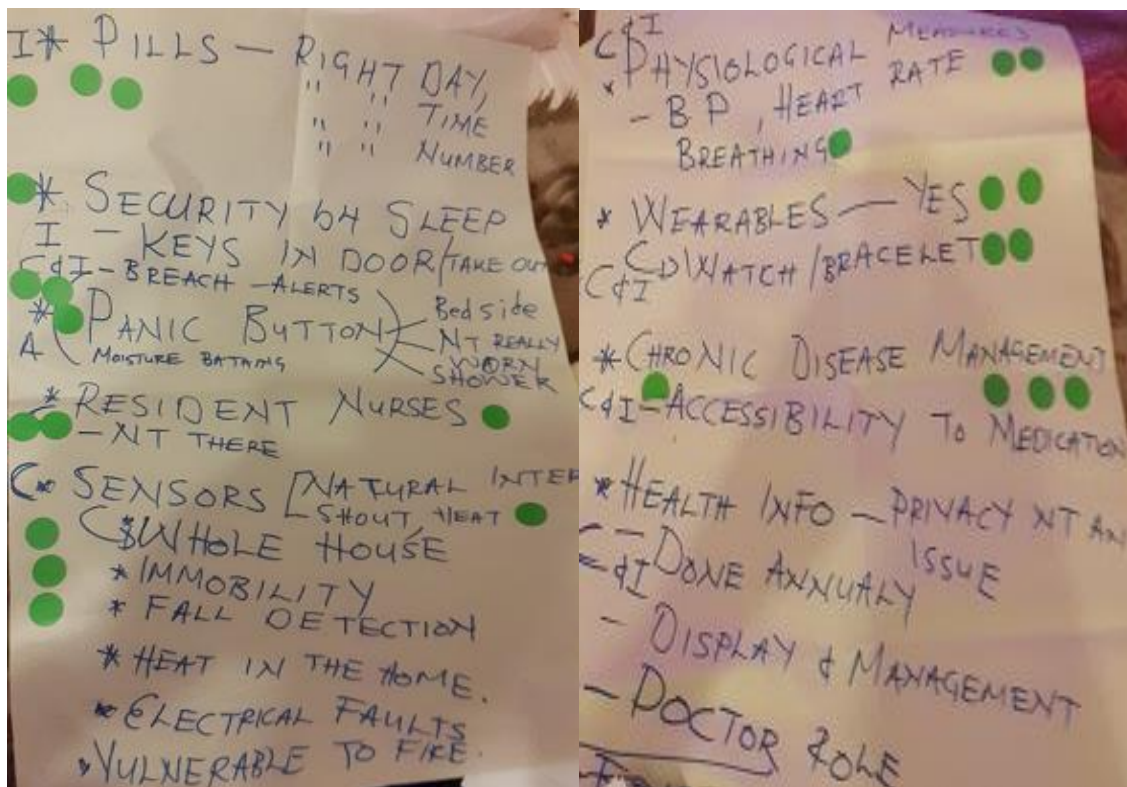 I* PILLS — RIGHT DAY,
" " TIME
" " NUMBER
* SECURITY b4 SLEEP
I — KEYS IN DOOR/TAKE OUT
C&I - BREACH - ALERTS
* PANIC BUTTON
Bed side
NT REALLY
WORN
SHOWER
A MOISTURE BATHING
* RESIDENT NURSES
- NT THERE
C* SENSORS [NATURAL INTER
- SHOUT, HEAT
WHOLE HOUSE
* IMMOBILITY
* FALL DETECTION
* HEAT IN THE HOME.
* ELECTRICAL FAULTS
* VULNERABLE TO FIRE.
C&I
* PHYSIOLOGICAL MEASURES
- BP, HEART RATE
BREATHING
* WEARABLES — YES
WATCH/BRACELET
C&I
* CHRONIC DISEASE MANAGEMENT
C&I - ACCESSIBILITY TO MEDICATION
* HEALTH INFO — PRIVACY NT AN
ISSUE
- DONE ANNUALY
&I
- DISPLAY & MANAGEMENT
- DOCTOR ROLE